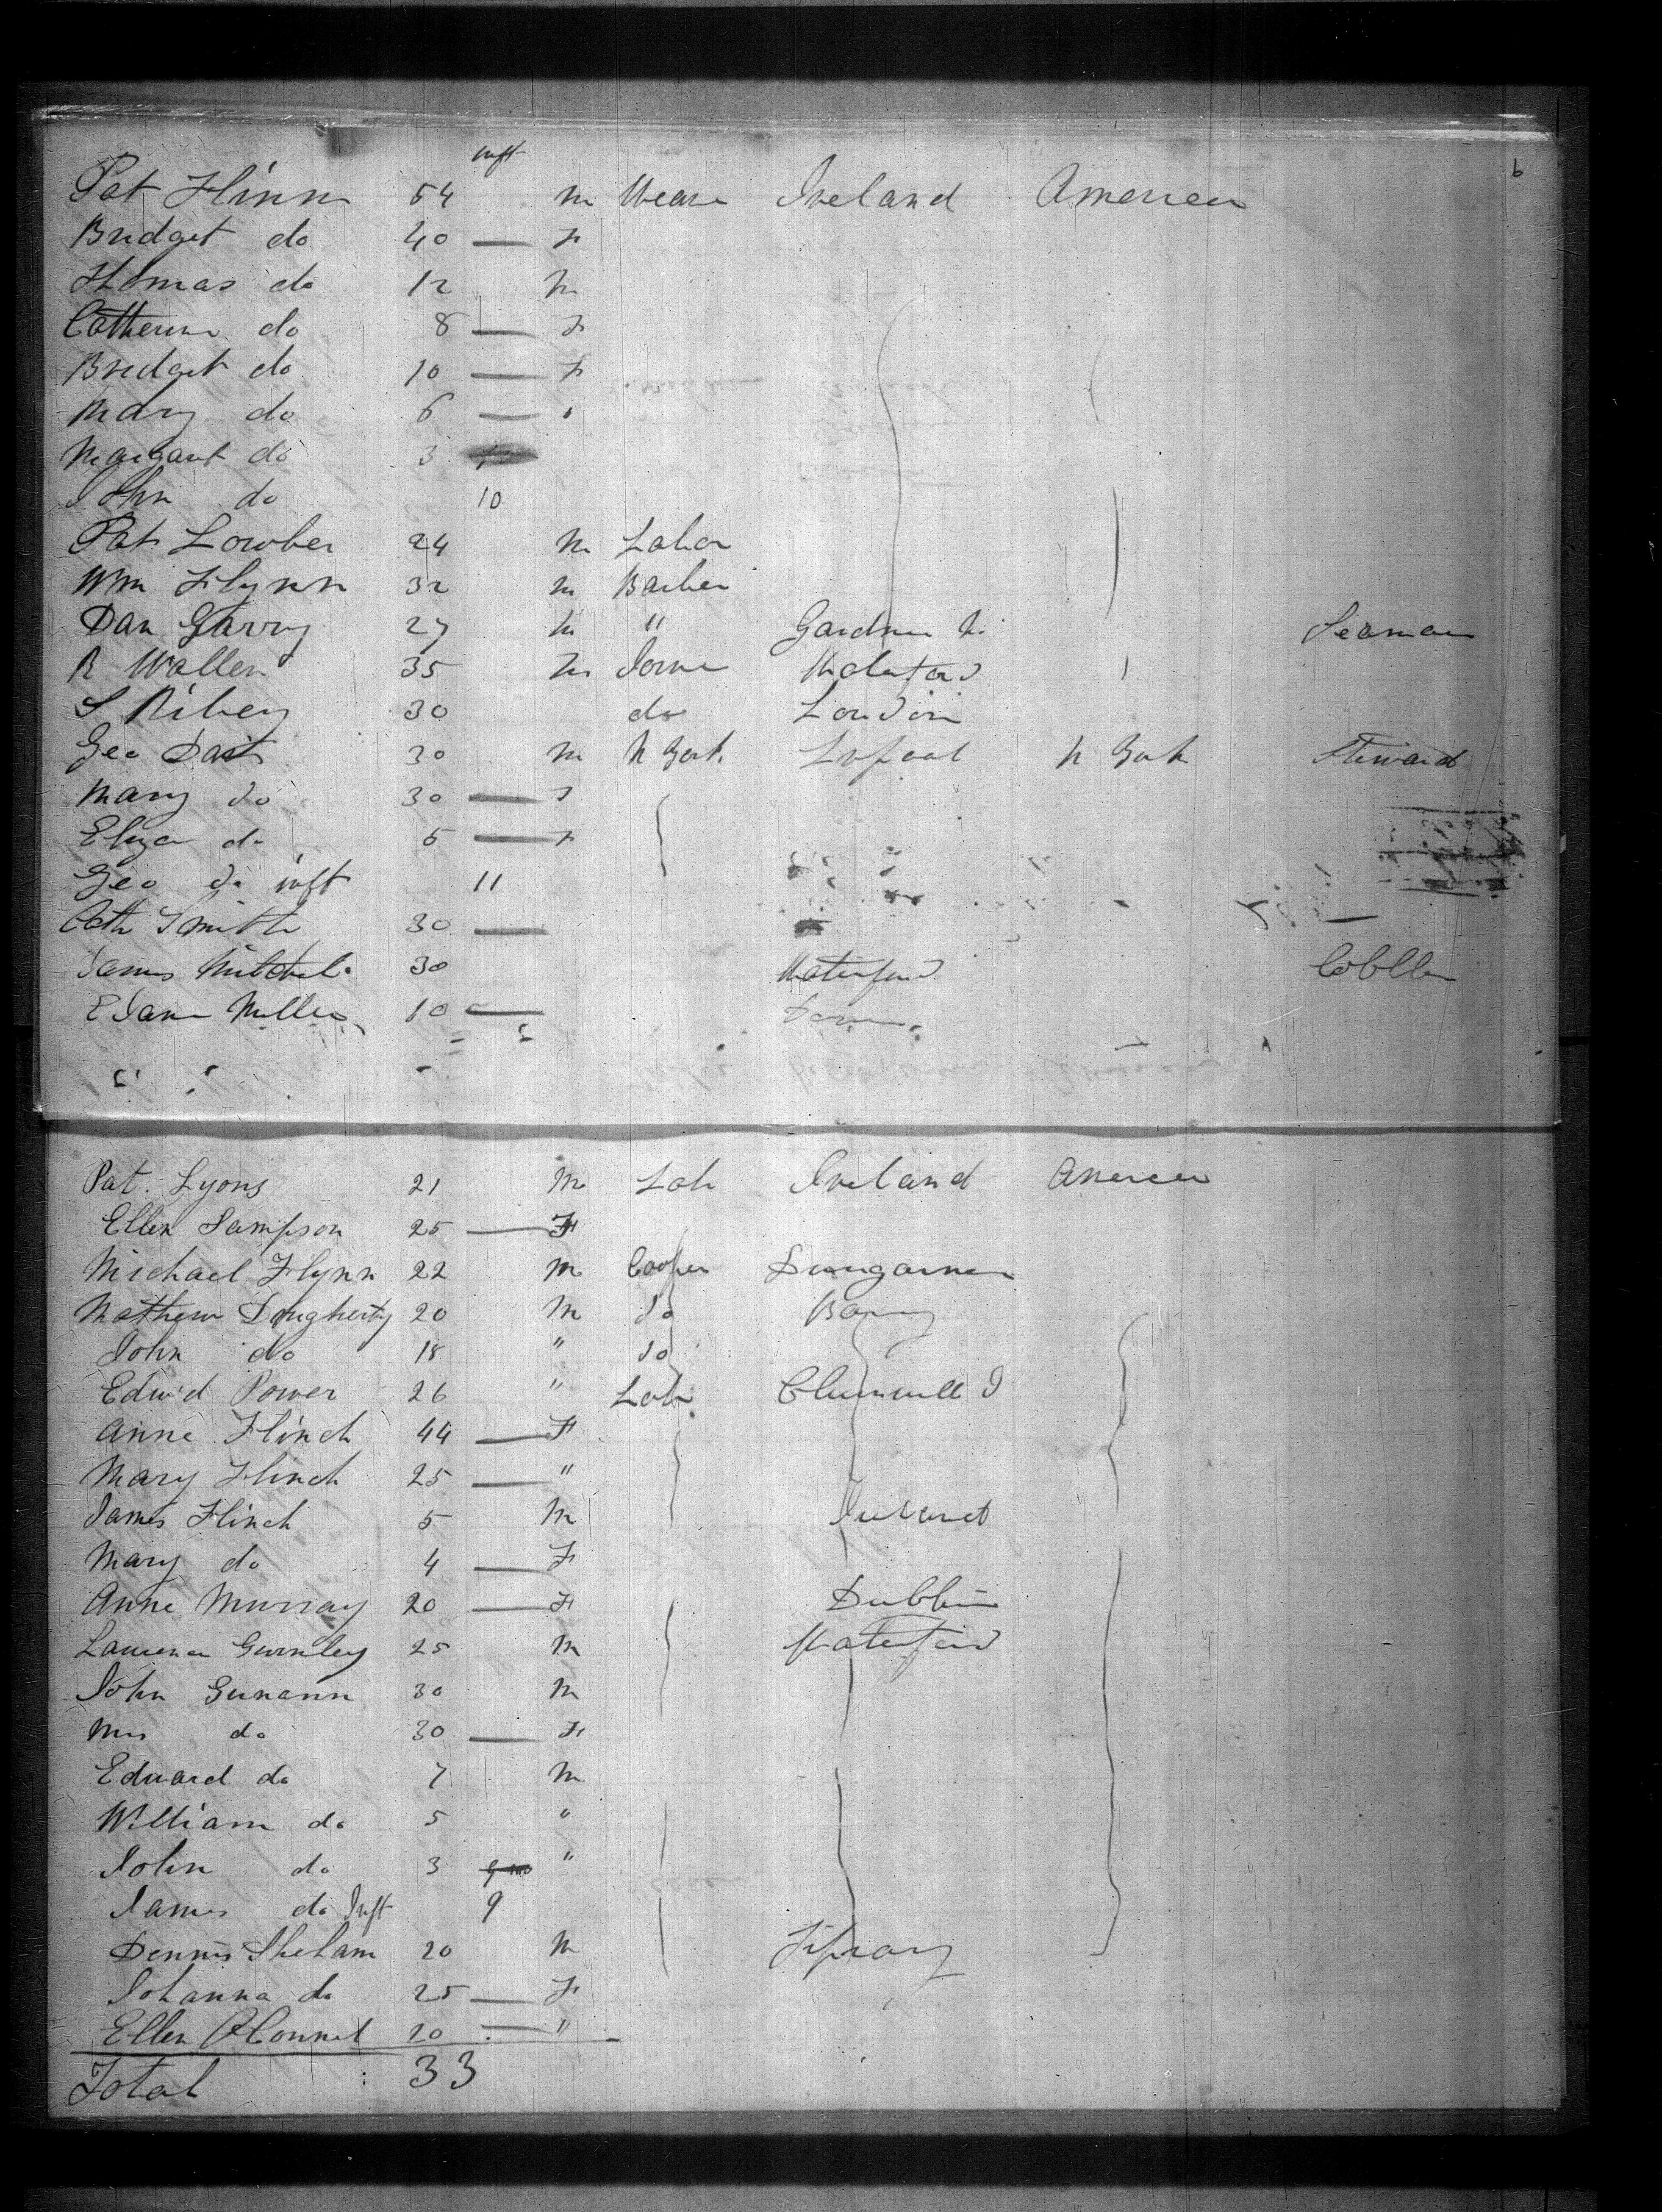 b
inft
Pat Flinn 54 m Weave Ireland America
Bridget do 40 — F
Thomas do 12 m
Catherin do 8 — F
Bridget do 10 — F
Mary do 6 — "
Margaret do 3
John do 10
Pat Lowber 24 m Labor
Wm Flynn 32 m Barber
Dan Garry 27 m " Seaman
R Wallen 35 m
S Riley 30 do London
Geo 30 m N York Lvpool N York Steward
Mary do 30 — F
Eliza do 5 — F
Geo do inft 11
Cath Smith 30 —
James Mitchel 30 Waterford Cobller
E Jane Miller 10 —
Pat. Lyons 21 M Lab Ireland America
Ellen Sampson 25 — F
Michael Flynn 22 M Cooper Dungarnen
Mathew Dougherty 20 M do
John do 18 " do
Edwd Power 26 " Lab
Anne Flinch 44 — F
Mary Flinch 25 — "
James Flinch 5 M
Mary do 4 — F
Anne Murray 20 — F Dublin
Laurence Gurnley 25 M Waterford
John Gunann 30 M
Mrs do 30 — F
Edward do 7 M
William do 5 "
John do 3 "
James do Inft 9
Dennis Shelam 20 M Tiprary
Johanna do 25 — F
Ellen O'Connel 20 — "
Total 33